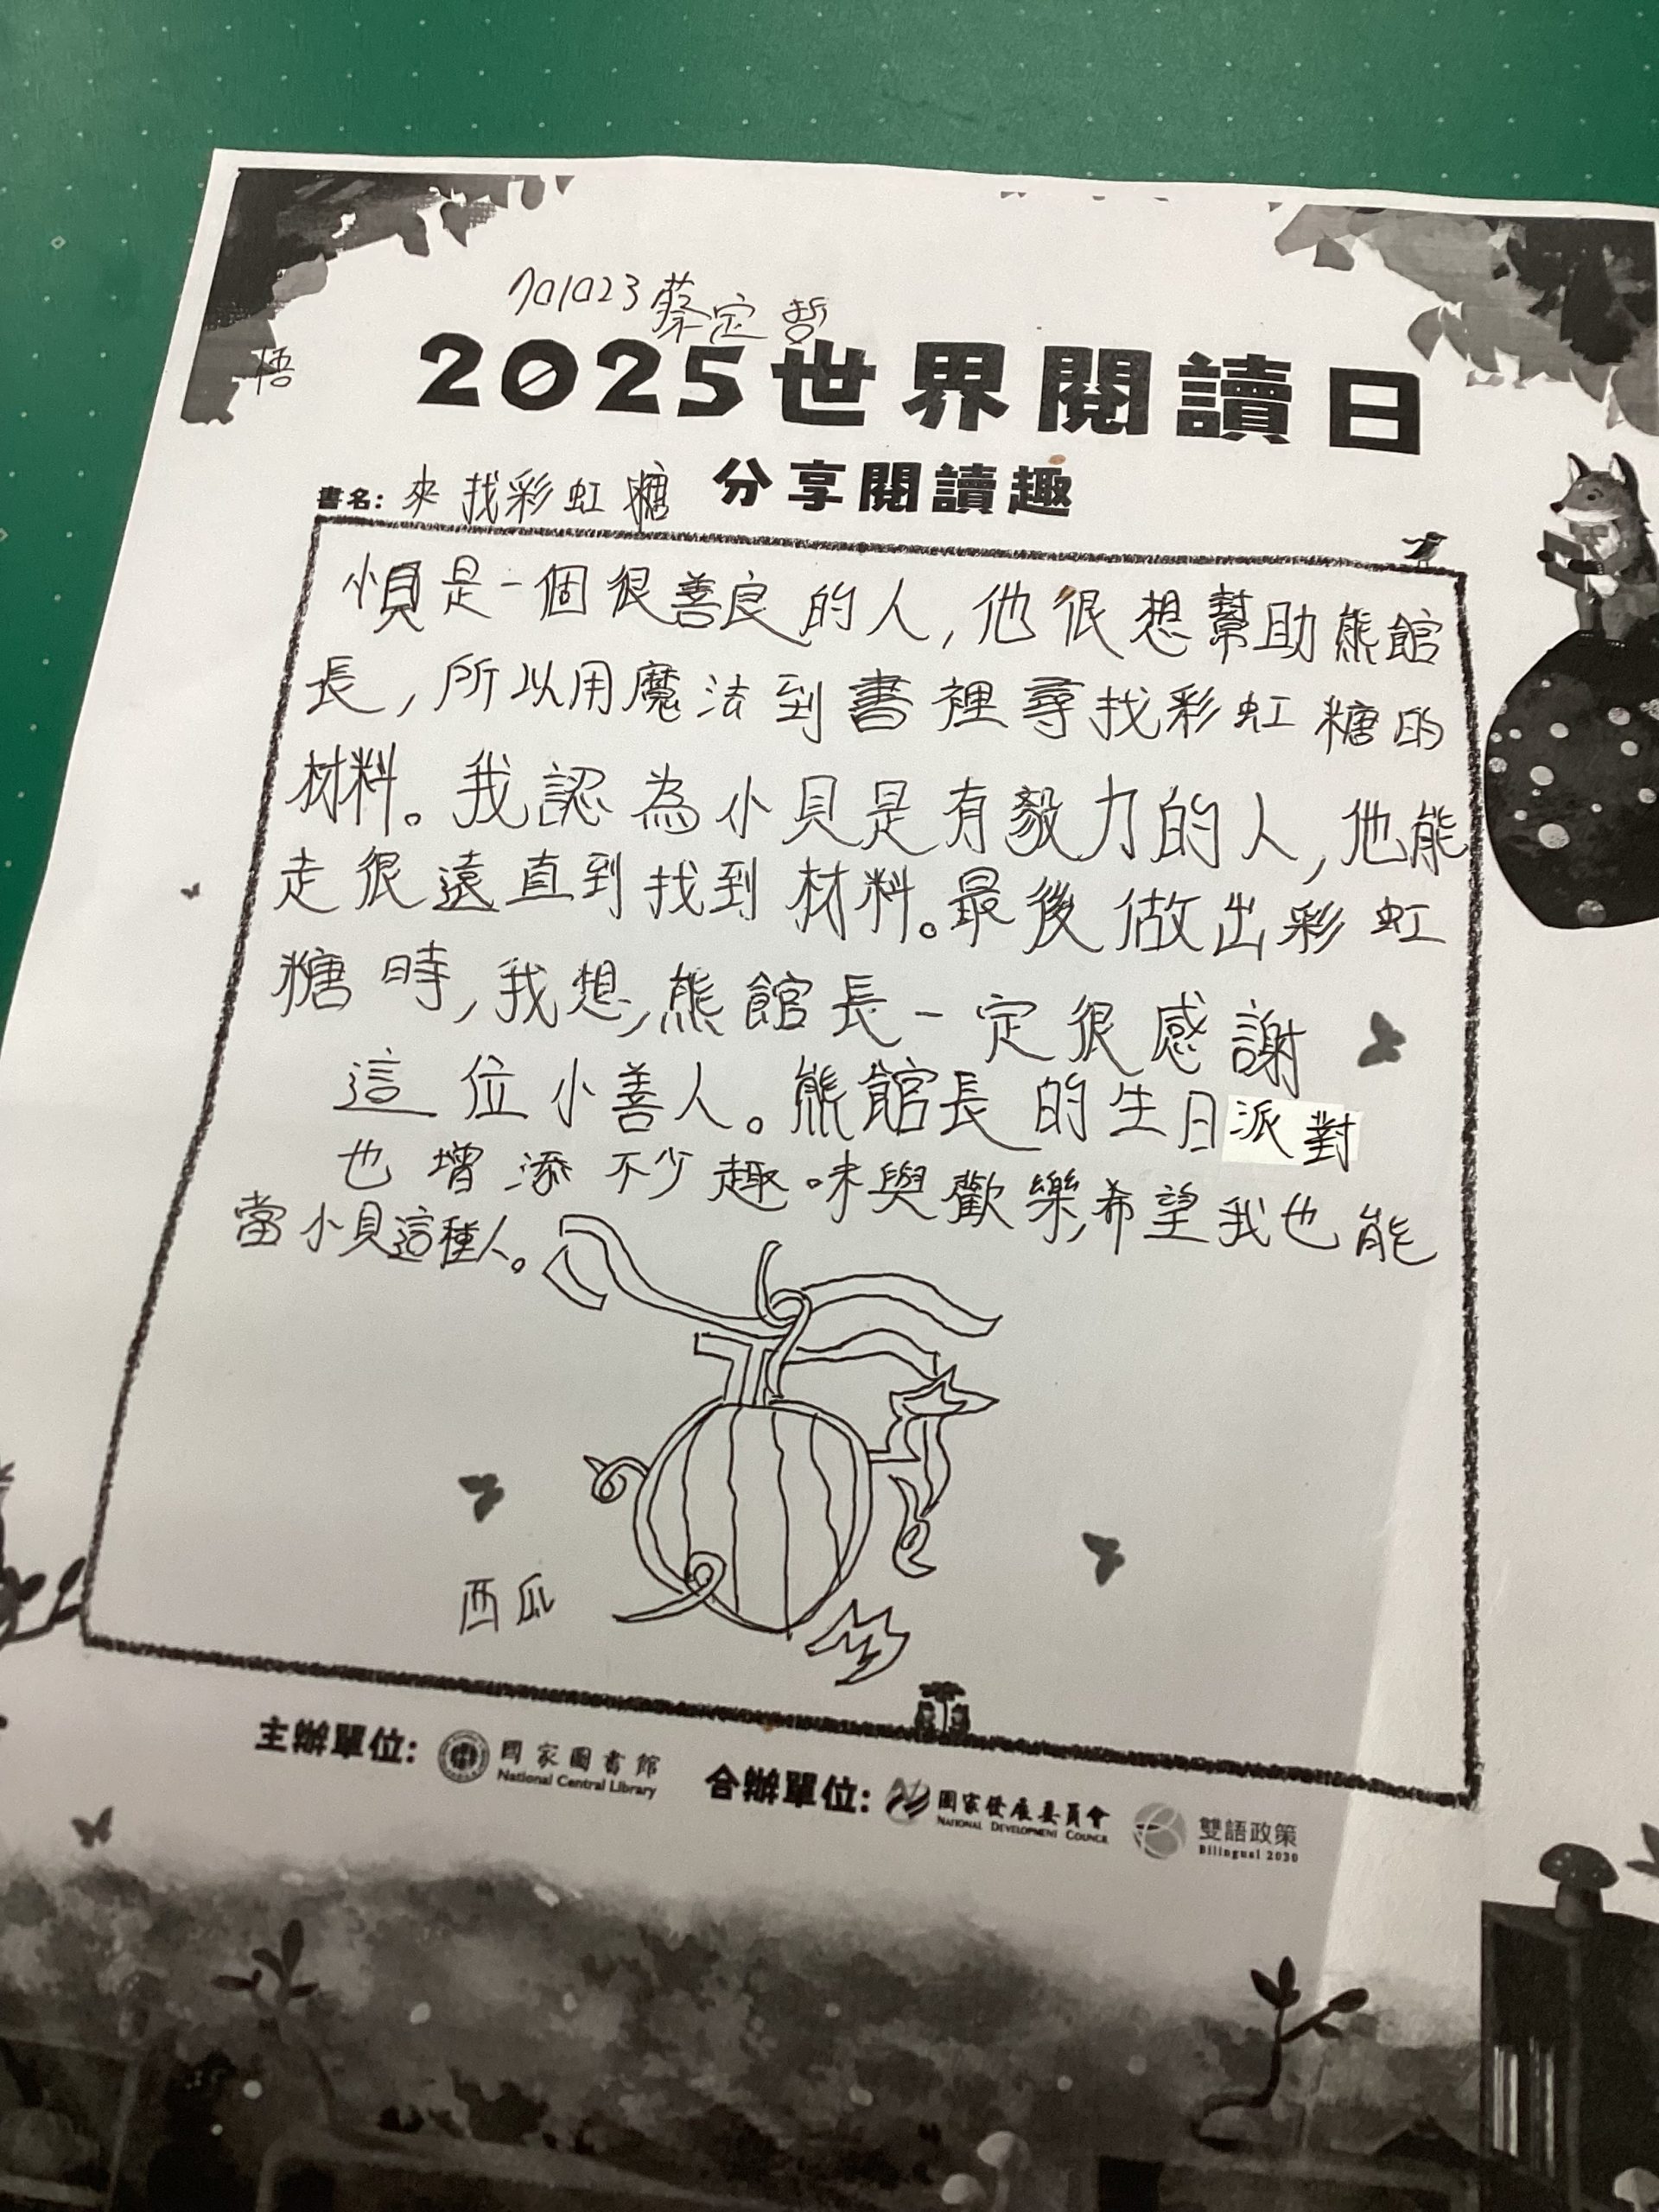 701023蔡定哲
梧
2025世界閱讀日
分享閱讀趣
書名: 來找彩虹糖
小貝是一個很善良的人,他很想幫助熊館
長,所以用魔法到書裡尋找彩虹糖的
材料。我認為小貝是有毅力的人,他能
走很遠直到找到材料。最後做出彩虹
糖時,我想,熊館長一定很感謝
這位小善人。熊館長的生日派對
也增添不少趣味與歡樂,希望我也能
當小貝這種人。
西瓜
主辦單位: 國家圖書館 National Central Library
合辦單位: 國家發展委員會 NATIONAL DEVELOPMENT COUNCIL
雙語政策 Bilingual 2030